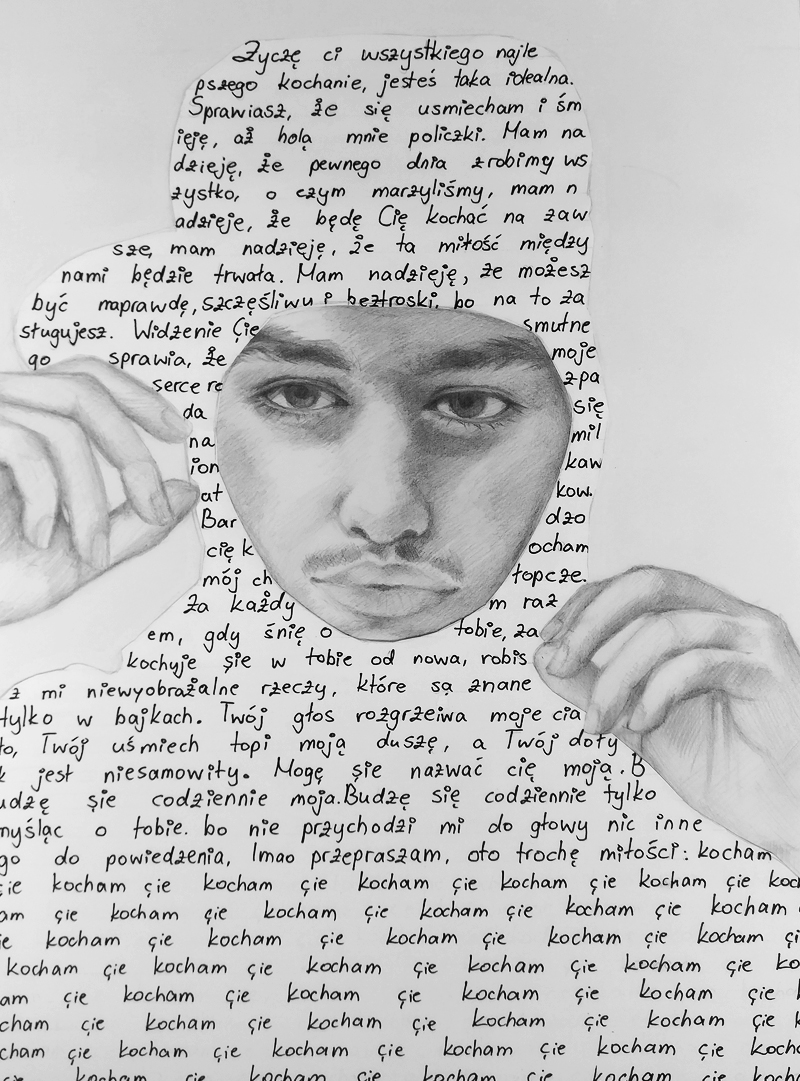 Życzę ci wszystkiego najle
pszego kochanie, jesteś taka idealna.
Sprawiasz, że się usmiecham i śm
ieję, aż holą mnie policzki. Mam na
dzieję, że pewnego dnia zrobimy ws
zystko, o czym marzyliśmy, mam n
adzieje, że będę Cię kochać na zaw
sze, mam nadzieję, że ta miłość między
nami będzie trwała. Mam nadzieję, że możesz
być naprawdę, szczęśliwu i beztroski, bo na to za
sługujesz. Widzenie Çie smutne
go sprawia, że moje
serce re zpa
da się
na mil
ion kaw
at kow.
Bar dzo
cię k ocham
mój ch łopcze.
Za każdy m raz
em, gdy śnię o tobie, za
kochuje şie w tobie od nowa, robis
z mi niewyobrażalne rzeczy, które są znane
tylko w bajkach. Twój głos rozgrzeiwa moje cia
ło, Twój uśmiech topi moją duszę, a Twój doty
k jest niesamowity. Mogę şie nazwać cię moją. B
udzę şie codziennie moja. Budzę się codziennie tylko
myśląc o tobie. bo nie przychodzi mi do głowy nic inne
go do powiedzenia, lmao przepraszam, oto trochę miłości: kocham
çie kocham çie kocham çie kocham çie kocham çie kocham çie koc
am çie kocham çie kocham çie kocham çie kocham çie kocham
ie kocham çie kocham çie kocham çie kocham çie kocham çi
kocham çie kocham çie kocham çie kocham çie kocham çie ko
am çie kocham çie kocham çie kocham çie kocham çie k
cham çie kocham çie kocham çie kocham çie kocham çie k
cham çie kocham çie kocham çie kocham çie kocham çie kocha
kocham çie kocham çie kocham çie kocham çie kocham